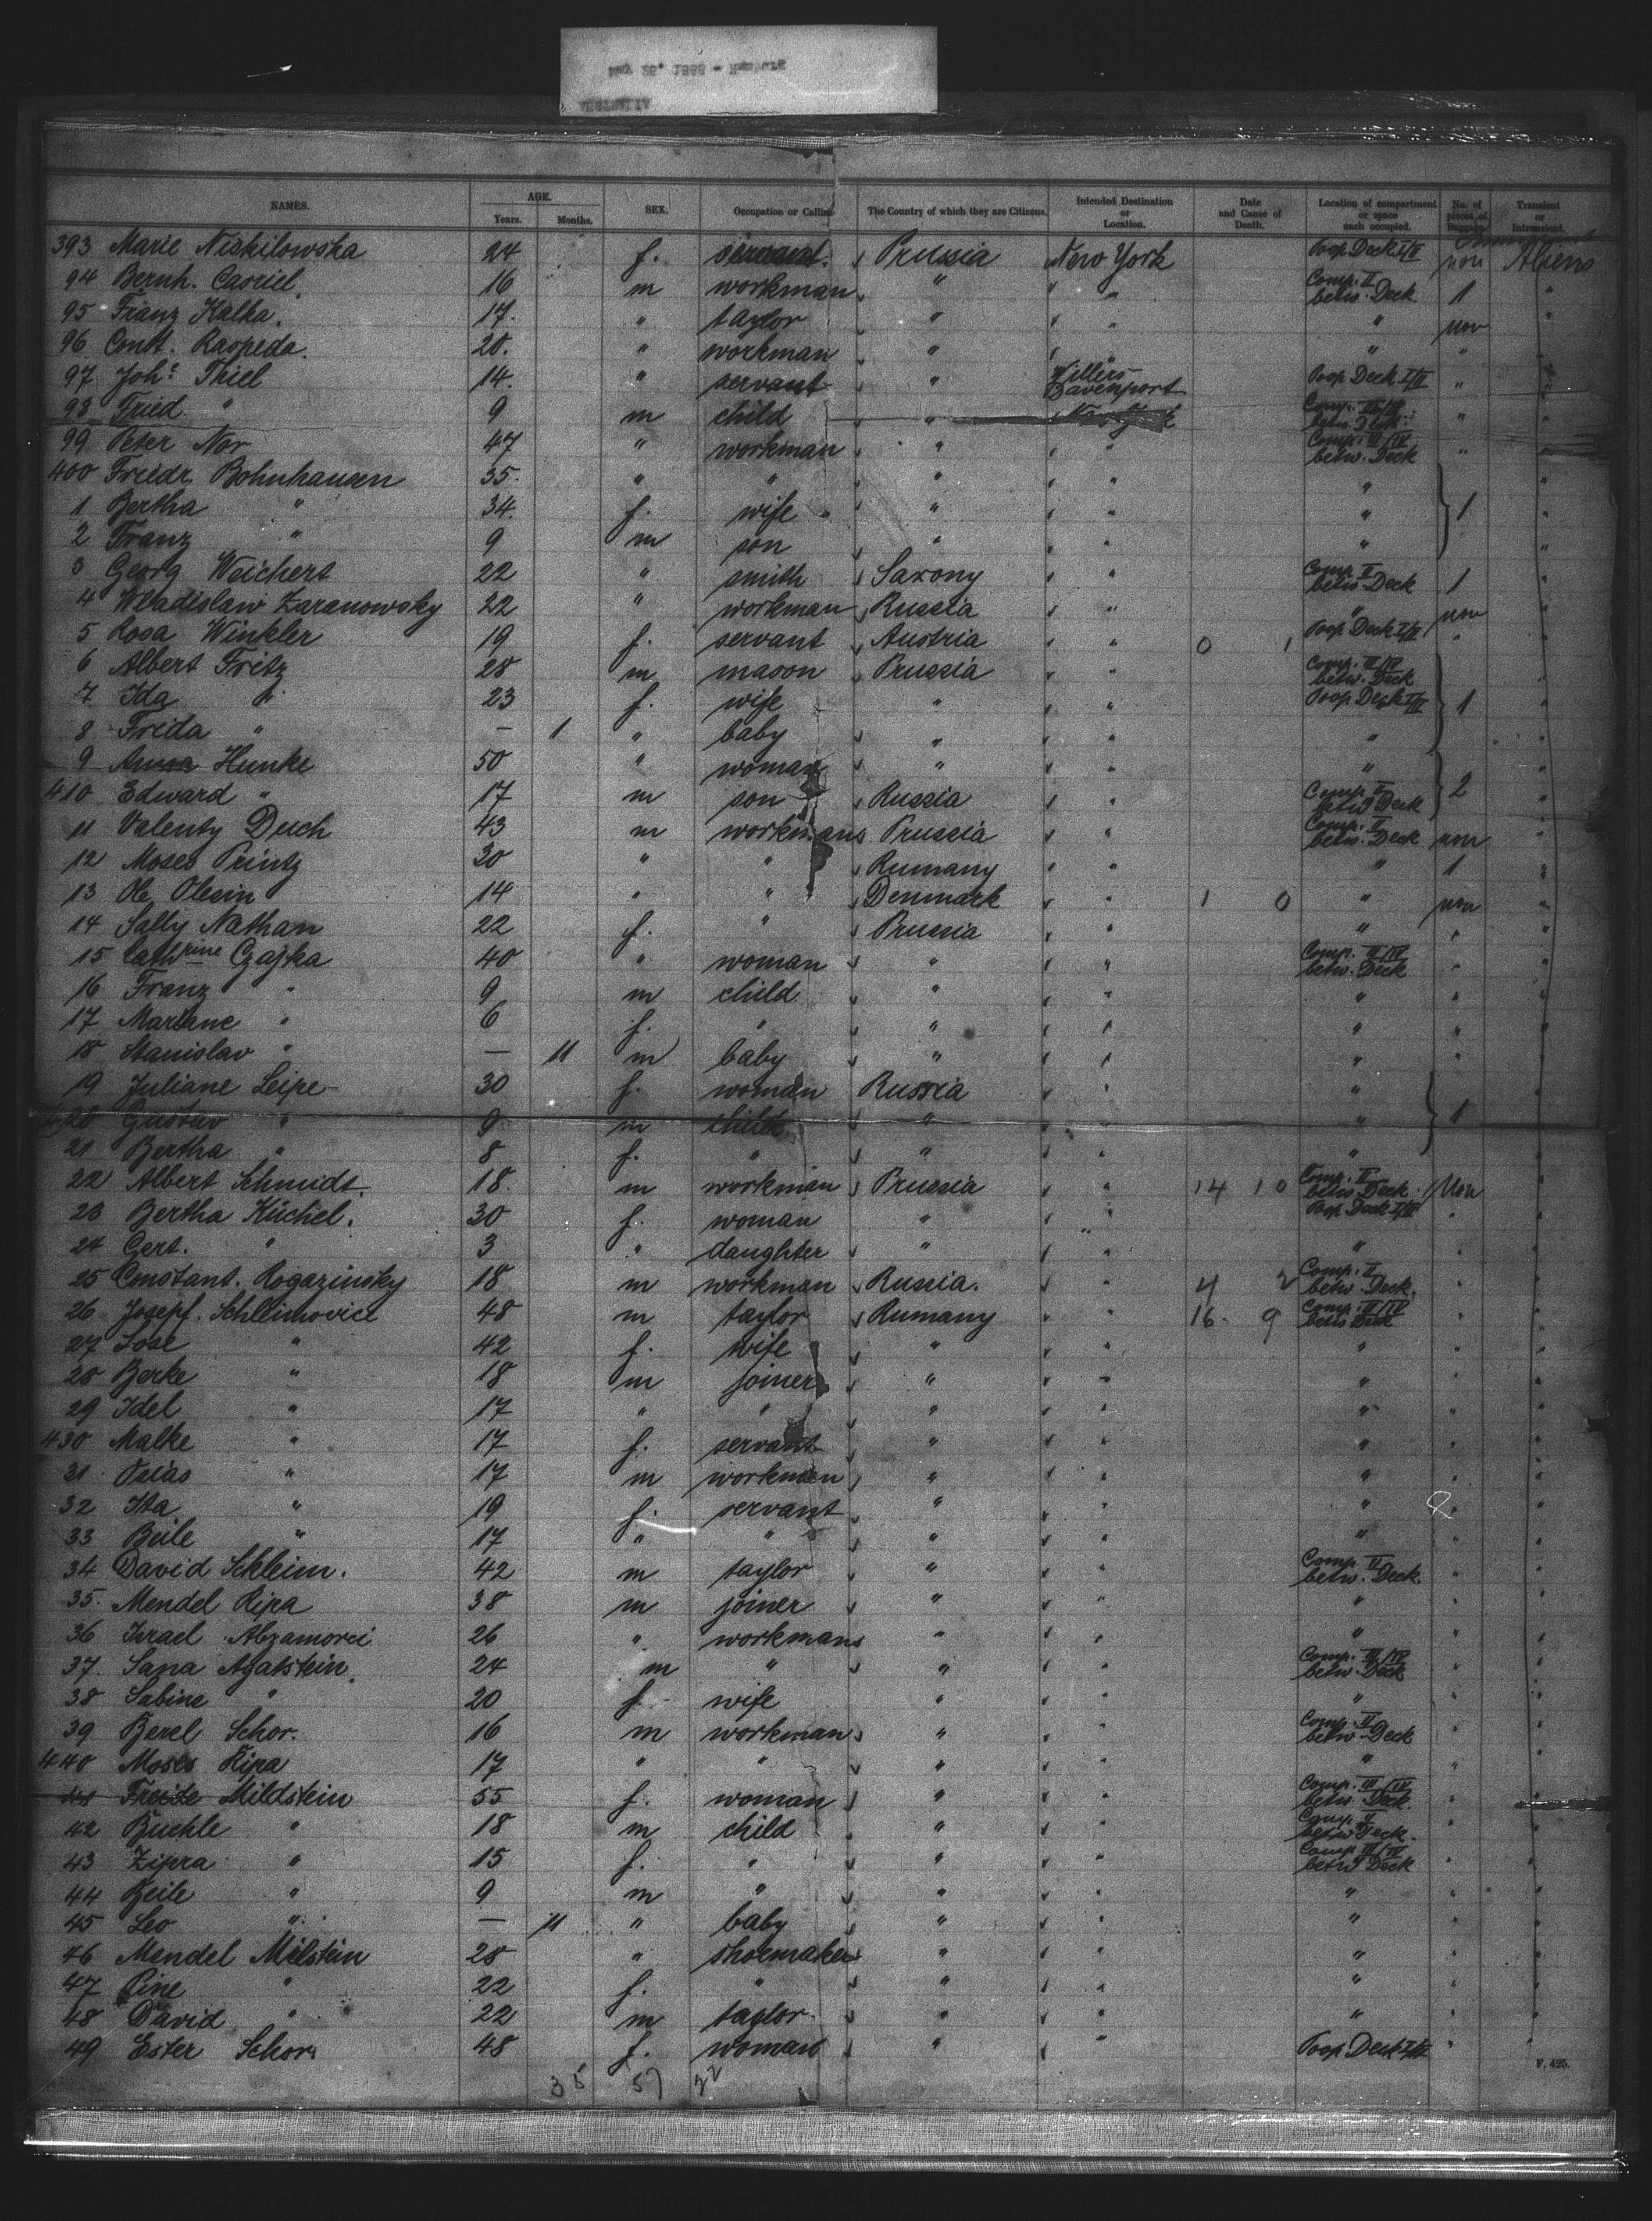 May 28, 1888 - Hamburg
NAMES. AGE. Years. Months. SEX. Occupation or Calling The Country of which they are Citizens. Intended Destination or Location. Date and Cause of Death. Location of compartment or space each occupied. No. of pieces of Baggage. Transient or Intransient.
393 Marie Niskilowska 24 f. servant. Prussia New York Poop Deck I/II non Aliens
94 Bernh. Casriel. 16 m workman " " " Comp. II betw. Deck 1 "
95 Franz Kalka. 17. " taylor " " " " non "
96 Const. Raopeda. 20. " workman " " " "
97 Johs. Thiel 14. " servant " Villers Davenport Poop Deck I/II "
98 Fried. " 9 m child " New York Comp. III/IV betw. Deck "
99 Peter Nor 47 " workman " " " Comp. III/IV betw. Deck "
400 Friedr. Bohnhausen 35. " " " " " " "
1 Bertha " 34. f. wife " " " " " 1 "
2 Franz " 9 m son " " " " "
3 Georg Weichert 22 " smith Saxony " " Comp. II betw. Deck 1 "
4 Wladislaw Zaranowsky 22 " workman Russia " " " non "
5 Rosa Winkler 19 f. servant Austria " " 0 1 Poop Deck I/II " "
6 Albert Fritz 28 m mason Prussia " " Comp. III/IV betw. Deck
7 Ida " 23 f. wife " " " Poop Deck I/II 1 "
8 Frida " — 1 " baby " " " " "
9 Anna Hunke 50 " woman " " " " "
410 Edward " 17 m son Russia " " Comp. II betw. Deck 2 "
11 Valenty Duch 43 m workmans Prussia " " Comp. II betw. Deck non "
12 Moses Printz 30 " " Rumany " " " 1 "
13 Ole Olesin 14 " " Denmark " " 1 0 " non "
14 Sally Nathan 22 f. " Prussia " " " " "
15 Cathrine Czajka 40 " woman " " " Comp. III/IV betw. Deck " "
16 Franz " 9 m child " " " " " "
17 Mariane " 6 f. " " " " " " "
18 Stanislav " — 11 m baby " " " " " "
19 Juliane Leipe 30 f. woman Russia " " " "
420 Gustav " 9 m child " " " " 1 "
21 Bertha " 8 f. " " " " " "
22 Albert Schmidt. 18. m workman Prussia " " 14 10 Comp. II betw. Deck Non "
23 Bertha Küchel. 30 f. woman " " " Poop Deck I/II " "
24 Gert. " 3 " daughter " " " " " "
25 Constant. Rogazinsky 18 m workman Russia. " " 4 2 Comp. II betw. Deck. " "
26 Josepf. Schleimovici 48 m taylor Rumany " " 16. 9 Comp. III/IV betw. Deck " "
27 Sose " 42 f. wife " " " " " "
28 Berke " 18 m joiner " " " " " "
29 Idel " 17 " " " " " " " "
430 Malke " 17 f. servant " " " " " "
31 Osias " 17 m workman " " " " " "
32 Ita " 19 f. servant " " " " " "
33 Beile " 17 " " " " " " " "
34 David Schleim. 42 m taylor " " " Comp. II betw. Deck. " "
35. Mendel Ripa 38 m joiner " " " " " "
36 Israel Abzamovici 26 " workmans " " " " " "
37. Sana Agatstein. 24 m " " " " Comp. III/IV betw. Deck " "
38 Sabine " 20 f. wife " " " " " "
39 Berel Schor. 16 m workman " " " Comp. II betw. Deck " "
440 Moses Ripa 17 " " " " " " " "
41 Freide Mildstein 55 f. woman " " " Comp. III/IV betw. Deck. " "
42 Buchle " 18 m child " " " Comp. II betw. Deck. " "
43 Zipra " 15 f. " " " " Comp. III/IV betw. Deck " "
44 Beile " 9 m " " " " " " "
45 Leo " — 11 " baby " " " " " "
46 Mendel Milstein 28 " shoemaker " " " " " "
47 Pine " 22 f. " " " " " " "
48 David " 22 m taylor " " " " " "
49 Ester Schor 48 f. woman " " " Poop Deck I/II " "
35 57 22
F. 425.